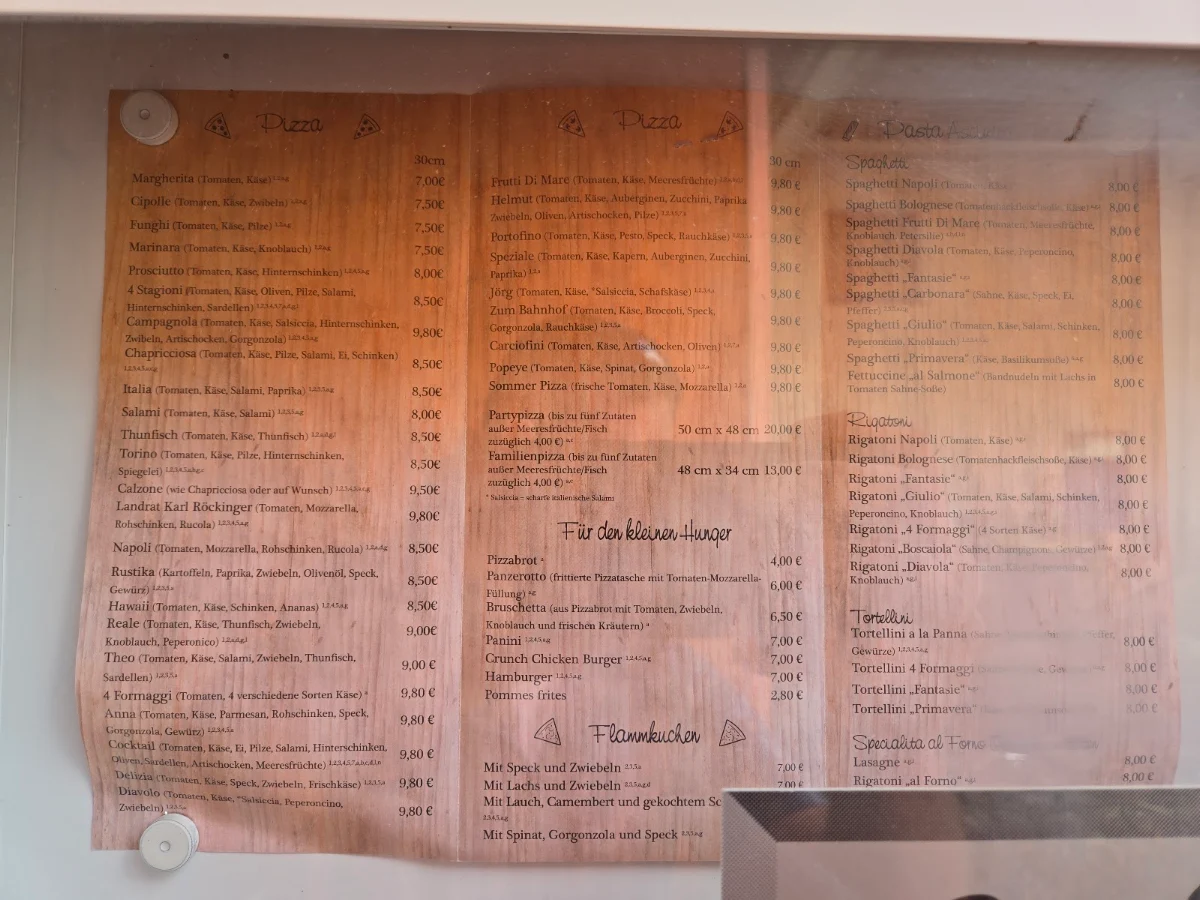 Pizza
30cm
Margherita (Tomaten, Käse) 7,00€
Cipolle (Tomaten, Käse, Zwibeln) 7,50€
Funghi (Tomaten, Käse, Pilze) 7,50€
Marinara (Tomaten, Käse, Knoblauch) 7,50€
Prosciutto (Tomaten, Käse, Hinternschinken) 8,00€
4 Stagioni (Tomaten, Käse, Oliven, Pilze, Salami,
Hinternschinken, Sardellen) 8,50€
Campagnola (Tomaten, Käse, Salsiccia, Hinternschinken,
Zwibeln, Artischocken, Gorgonzola) 9,80€
Chapricciosa (Tomaten, Käse, Pilze, Salami, Ei, Schinken)
8,50€
Italia (Tomaten, Käse, Salami, Paprika) 8,50€
Salami (Tomaten, Käse, Salami) 8,00€
Thunfisch (Tomaten, Käse, Thunfisch) 8,50€
Torino (Tomaten, Käse, Pilze, Hinternschinken,
Spiegelei) 8,50€
Calzone (wie Chapricciosa oder auf Wunsch) 9,50€
Landrat Karl Röckinger (Tomaten, Mozzarella,
Rohschinken, Rucola) 9,80€
Napoli (Tomaten, Mozzarella, Rohschinken, Rucola) 8,50€
Rustika (Kartoffeln, Paprika, Zwiebeln, Olivenöl, Speck,
Gewürz) 8,50€
Hawaii (Tomaten, Käse, Schinken, Ananas) 8,50€
Reale (Tomaten, Käse, Thunfisch, Zwiebeln,
Knoblauch, Peperonico) 9,00€
Theo (Tomaten, Käse, Salami, Zwiebeln, Thunfisch,
Sardellen) 9,00 €
4 Formaggi (Tomaten, 4 verschiedene Sorten Käse) 9,80 €
Anna (Tomaten, Käse, Parmesan, Rohschinken, Speck,
Gorgonzola, Gewürz) 9,80 €
Cocktail (Tomaten, Käse, Ei, Pilze, Salami, Hinterschinken,
Oliven, Sardellen, Artischocken, Meeresfrüchte) 9,80 €
Delizia (Tomaten, Käse, Speck, Zwiebeln, Frischkäse) 9,80 €
Diavolo (Tomaten, Käse, *Salsiccia, Peperoncino,
Zwiebeln) 9,80 €
Pizza
30 cm
Frutti Di Mare (Tomaten, Käse, Meeresfrüchte) 9,80 €
Helmut (Tomaten, Käse, Auberginen, Zucchini, Paprika
Zwiebeln, Oliven, Artischocken, Pilze) 9,80 €
Portofino (Tomaten, Käse, Pesto, Speck, Rauchkäse) 9,80 €
Speziale (Tomaten, Käse, Kapern, Auberginen, Zucchini,
Paprika) 9,80 €
Jörg (Tomaten, Käse, *Salsiccia, Schafskäse) 9,80 €
Zum Bahnhof (Tomaten, Käse, Broccoli, Speck,
Gorgonzola, Rauchkäse) 9,80 €
Carciofini (Tomaten, Käse, Artischocken, Oliven) 9,80 €
Popeye (Tomaten, Käse, Spinat, Gorgonzola) 9,80 €
Sommer Pizza (frische Tomaten, Käse, Mozzarella) 9,80 €
Partypizza (bis zu fünf Zutaten
außer Meeresfrüchte/Fisch 50 cm x 48 cm 20,00 €
zuzüglich 4,00 €)
Familienpizza (bis zu fünf Zutaten
außer Meeresfrüchte/Fisch 48 cm x 34 cm 13,00 €
zuzüglich 4,00 €)
* Salsiccia = scharfe italienische Salami
Für den kleinen Hunger
Pizzabrot 4,00 €
Panzerotto (frittierte Pizzatasche mit Tomaten-Mozzarella-
Füllung) 6,00 €
Bruschetta (aus Pizzabrot mit Tomaten, Zwiebeln,
Knoblauch und frischen Kräutern) 6,50 €
Panini 7,00 €
Crunch Chicken Burger 7,00 €
Hamburger 7,00 €
Pommes frites 2,80 €
Flammkuchen
Mit Speck und Zwiebeln 7,00 €
Mit Lachs und Zwiebeln 7,00 €
Mit Lauch, Camembert und gekochtem
Mit Spinat, Gorgonzola und Speck
Pasta
Spaghetti
Spaghetti Napoli (Tomaten, Käse) 8,00 €
Spaghetti Bolognese (Tomatenhackfleischsoße, Käse) 8,00 €
Spaghetti Frutti Di Mare (Tomaten, Meeresfrüchte,
Knoblauch, Petersilie) 8,00 €
Spaghetti Diavola (Tomaten, Käse, Peperoncino,
Knoblauch) 8,00 €
Spaghetti „Fantasie" 8,00 €
Spaghetti „Carbonara" (Sahne, Käse, Speck, Ei,
Pfeffer) 8,00 €
Spaghetti „Giulio" (Tomaten, Käse, Salami, Schinken,
Peperoncino, Knoblauch) 8,00 €
Spaghetti „Primavera" (Käse, Basilikumsoße) 8,00 €
Fettuccine „al Salmone" (Bandnudeln mit Lachs in
Tomaten Sahne-Soße) 8,00 €
Rigatoni
Rigatoni Napoli (Tomaten, Käse) 8,00 €
Rigatoni Bolognese (Tomatenhackfleischsoße, Käse) 8,00 €
Rigatoni „Fantasie" 8,00 €
Rigatoni „Giulio" (Tomaten, Käse, Salami, Schinken,
Peperoncino, Knoblauch) 8,00 €
Rigatoni „4 Formaggi" (4 Sorten Käse) 8,00 €
Rigatoni „Boscaiola" (Sahne, Champignons, Gewürze) 8,00 €
Rigatoni „Diavola" (Tomaten, Käse, Peperoncino,
Knoblauch) 8,00 €
Tortellini
Tortellini a la Panna (Sahne, Pfeffer,
Gewürze) 8,00 €
Tortellini 4 Formaggi 8,00 €
Tortellini „Fantasie" 8,00 €
Tortellini „Primavera" 8,00 €
Specialita al Forno
Lasagne 8,00 €
Rigatoni „al Forno" 8,00 €